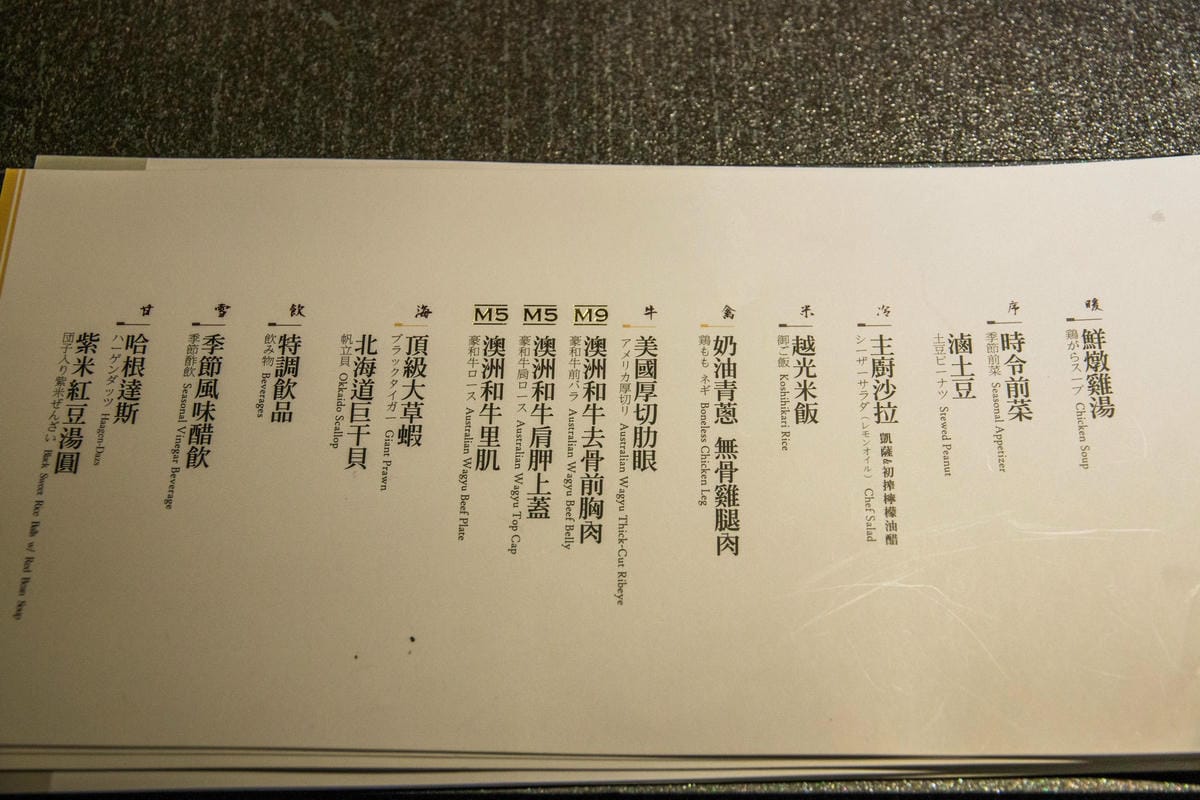 暖
鮮燉雞湯
鶏がらスープ Chicken Soup
序
時令前菜
季節前菜 Seasonal Appetizer
滷土豆
土豆ピーナツ Stewed Peanut
冷
主廚沙拉 凱薩&初搾檸檬油醋
シーザーサラダ(レモンオイル) Chef Salad
米
越光米飯
御ご飯 Koshihikari Rice
禽
奶油青蔥 無骨雞腿肉
鶏もも ネギ Boneless Chicken Leg
牛
美國厚切肋眼
アメリカ厚切り Australian Wagyu Thick-Cut Ribeye
M9
澳洲和牛去骨前胸肉
豪和牛前バラ Australian Wagyu Beef Belly
M5
澳洲和牛肩胛上蓋
豪和牛肩ロース Australian Wagyu Top Cap
M5
澳洲和牛里肌
豪和牛ロース Australian Wagyu Beef Plate
海
頂級大草蝦
ブラックタイガー Giant Prawn
北海道巨干貝
帆立貝 Okkaido Scallop
飲
特調飲品
飲み物 Beverages
雪
季節風味醋飲
季節酢飲 Seasonal Vinegar Beverage
甘
哈根達斯
ハーゲンダッツ Haagen-Dazs
紫米紅豆湯圓
団子入り紫米ぜんざい Black Sweet Rice Balls w/ Red Bean Soup